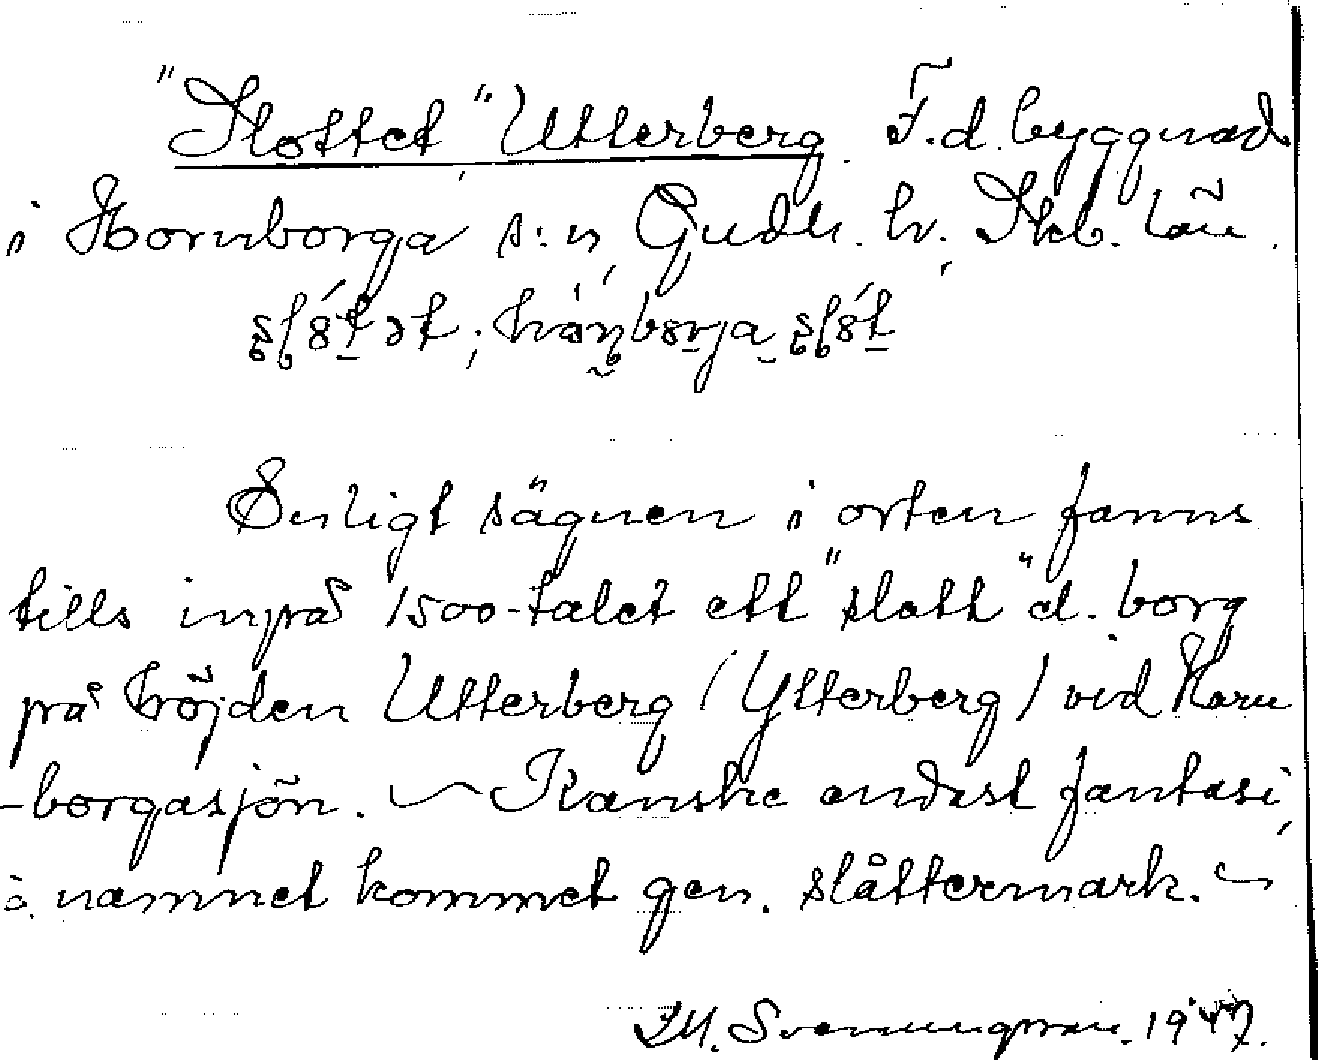 "Slottet" Utterberg. F.d. byggnad
i Hornborga s:n, Gudh. h., Skb. län.
Enligt sägnen i orten fanns
tills inpå 1500-talet ett "slott" d. borg
på höjden Utterberg (Ytterberg) vid Horn
-borgasjön. — Kanske endast fantasi,
o. namnet kommet gen. slåttermark. —
Svenungsson. 1947.